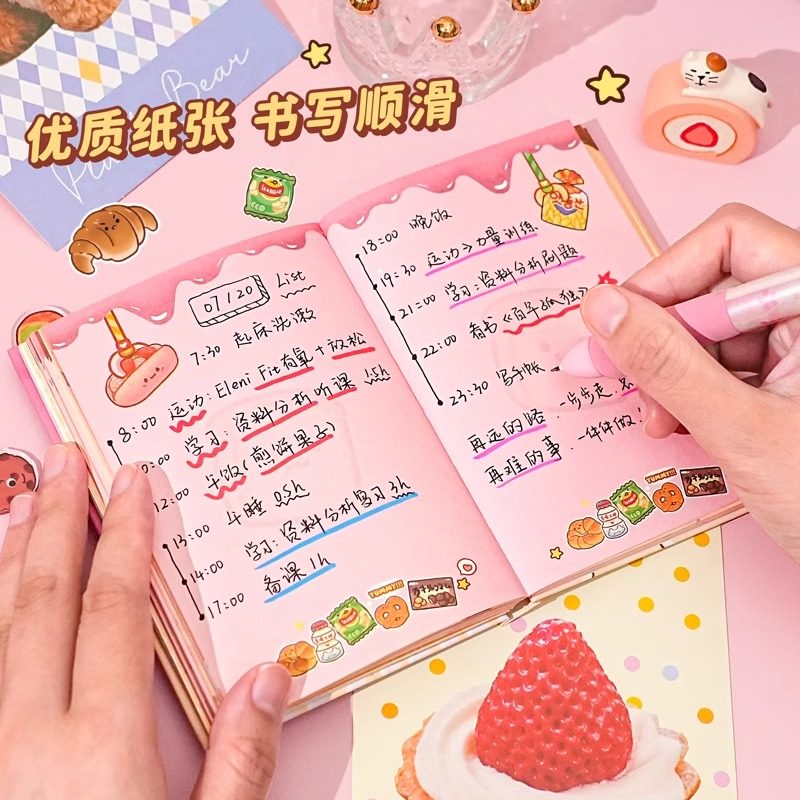 Bear
优质纸张 书写顺滑
07/20 List
7:30 起床洗漱
8:00 运动: Eleni Fit有氧+放松
9:00 学习: 资料分析听课 1.5h
12:00 午饭(煎饼果子)
13:00 午睡 0.5h
14:00 学习: 资料分析复习3h
17:00 备课1h
YUMMY!!!
18:00 晚饭
19:30 运动>力量训练
21:00 学习: 资料分析刷题
22:00 看书《百年孤独》
23:30 写手帐
再远的路、一步步走.
再难的事、一件件做!
YUMMY!!!